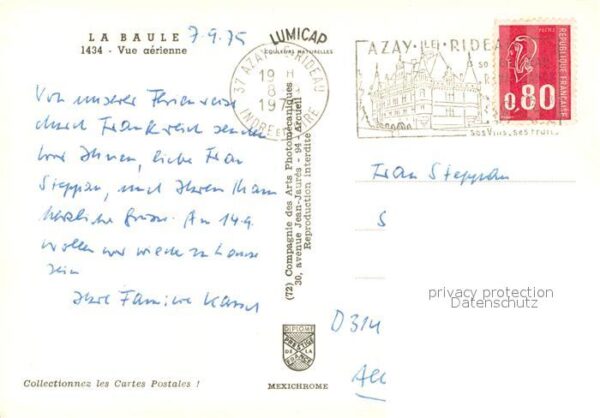 LA BAULE 7.9.75
1434 - Vue aérienne
LUMICAP
COULEURS NATURELLES
37 AZAY-LE-RIDEAU
19 H
8
197
INDRE ET LOIRE
AZAY-LE-RIDEA
SON
ses Vins, ses Fruits
POSTES
REPUBLIQUE FRANÇAISE
0,80
Von unserer Ferienreise
durch Frankreich senden
wir Ihnen, liebe Frau
Steppan, und Ihrem Mann
herzliche Grüße. Am 14.9.
wollen wir wieder zu Hause
sein
Ihre Familie Kassel
(72) Compagnie des Arts Photomécaniques
30, avenue Jean-Jaurès - 94 - Arcueil
Reproduction interdite
Frau Steppan
S
privacy protection
Datenschutz
D 314
All
DIPLOME
PRESTIGE
DE LA
FRANCE
MEXICHROME
Collectionnez les Cartes Postales !